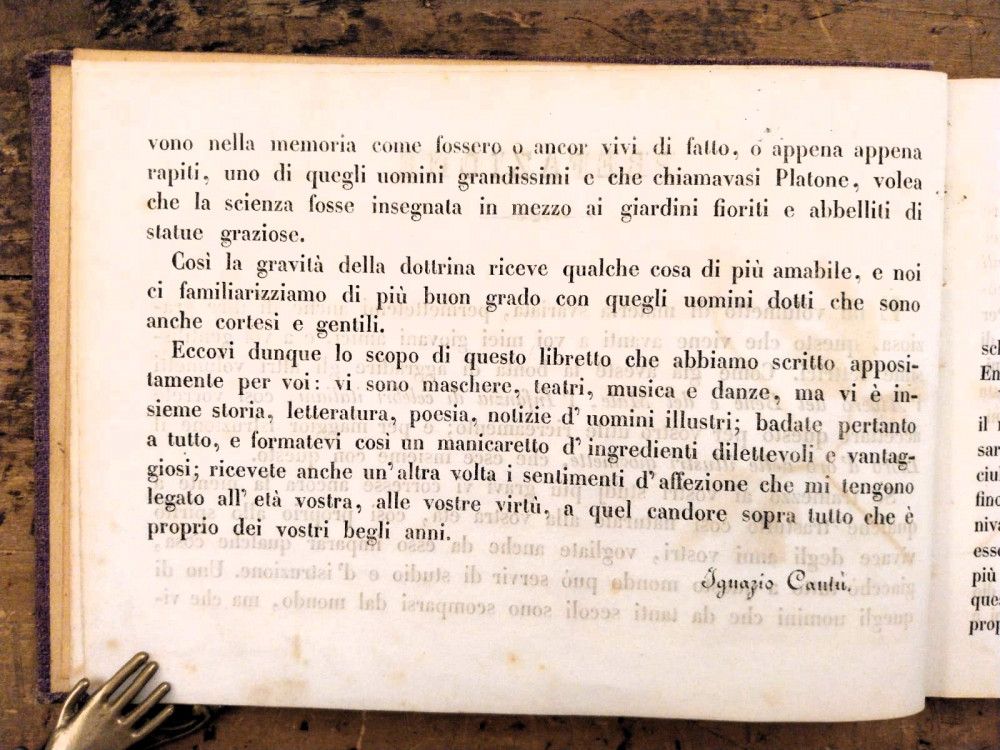 vono nella memoria come fossero o ancor vivi di fatto, o appena appena
rapiti, uno di quegli uomini grandissimi e che chiamavasi Platone, volea
che la scienza fosse insegnata in mezzo ai giardini fioriti e abbelliti di
statue graziose.
Così la gravità della dottrina riceve qualche cosa di più amabile, e noi
ci familiarizziamo di più buon grado con quegli uomini dotti che sono
anche cortesi e gentili.
Eccovi dunque lo scopo di questo libretto che abbiamo scritto apposi-
tamente per voi: vi sono maschere, teatri, musica e danze, ma vi è in-
sieme storia, letteratura, poesia, notizie d' uomini illustri; badate pertanto
a tutto, e formatevi così un manicaretto d' ingredienti dilettevoli e vantag-
giosi; ricevete anche un' altra volta i sentimenti d' affezione che mi tengono
legato all' età vostra, alle vostre virtù, a quel candore sopra tutto che è
proprio dei vostri begli anni.
Ignazio Cantù.
sch
En
il
sar
ciu
fino
niva
esse
più
ques
prop